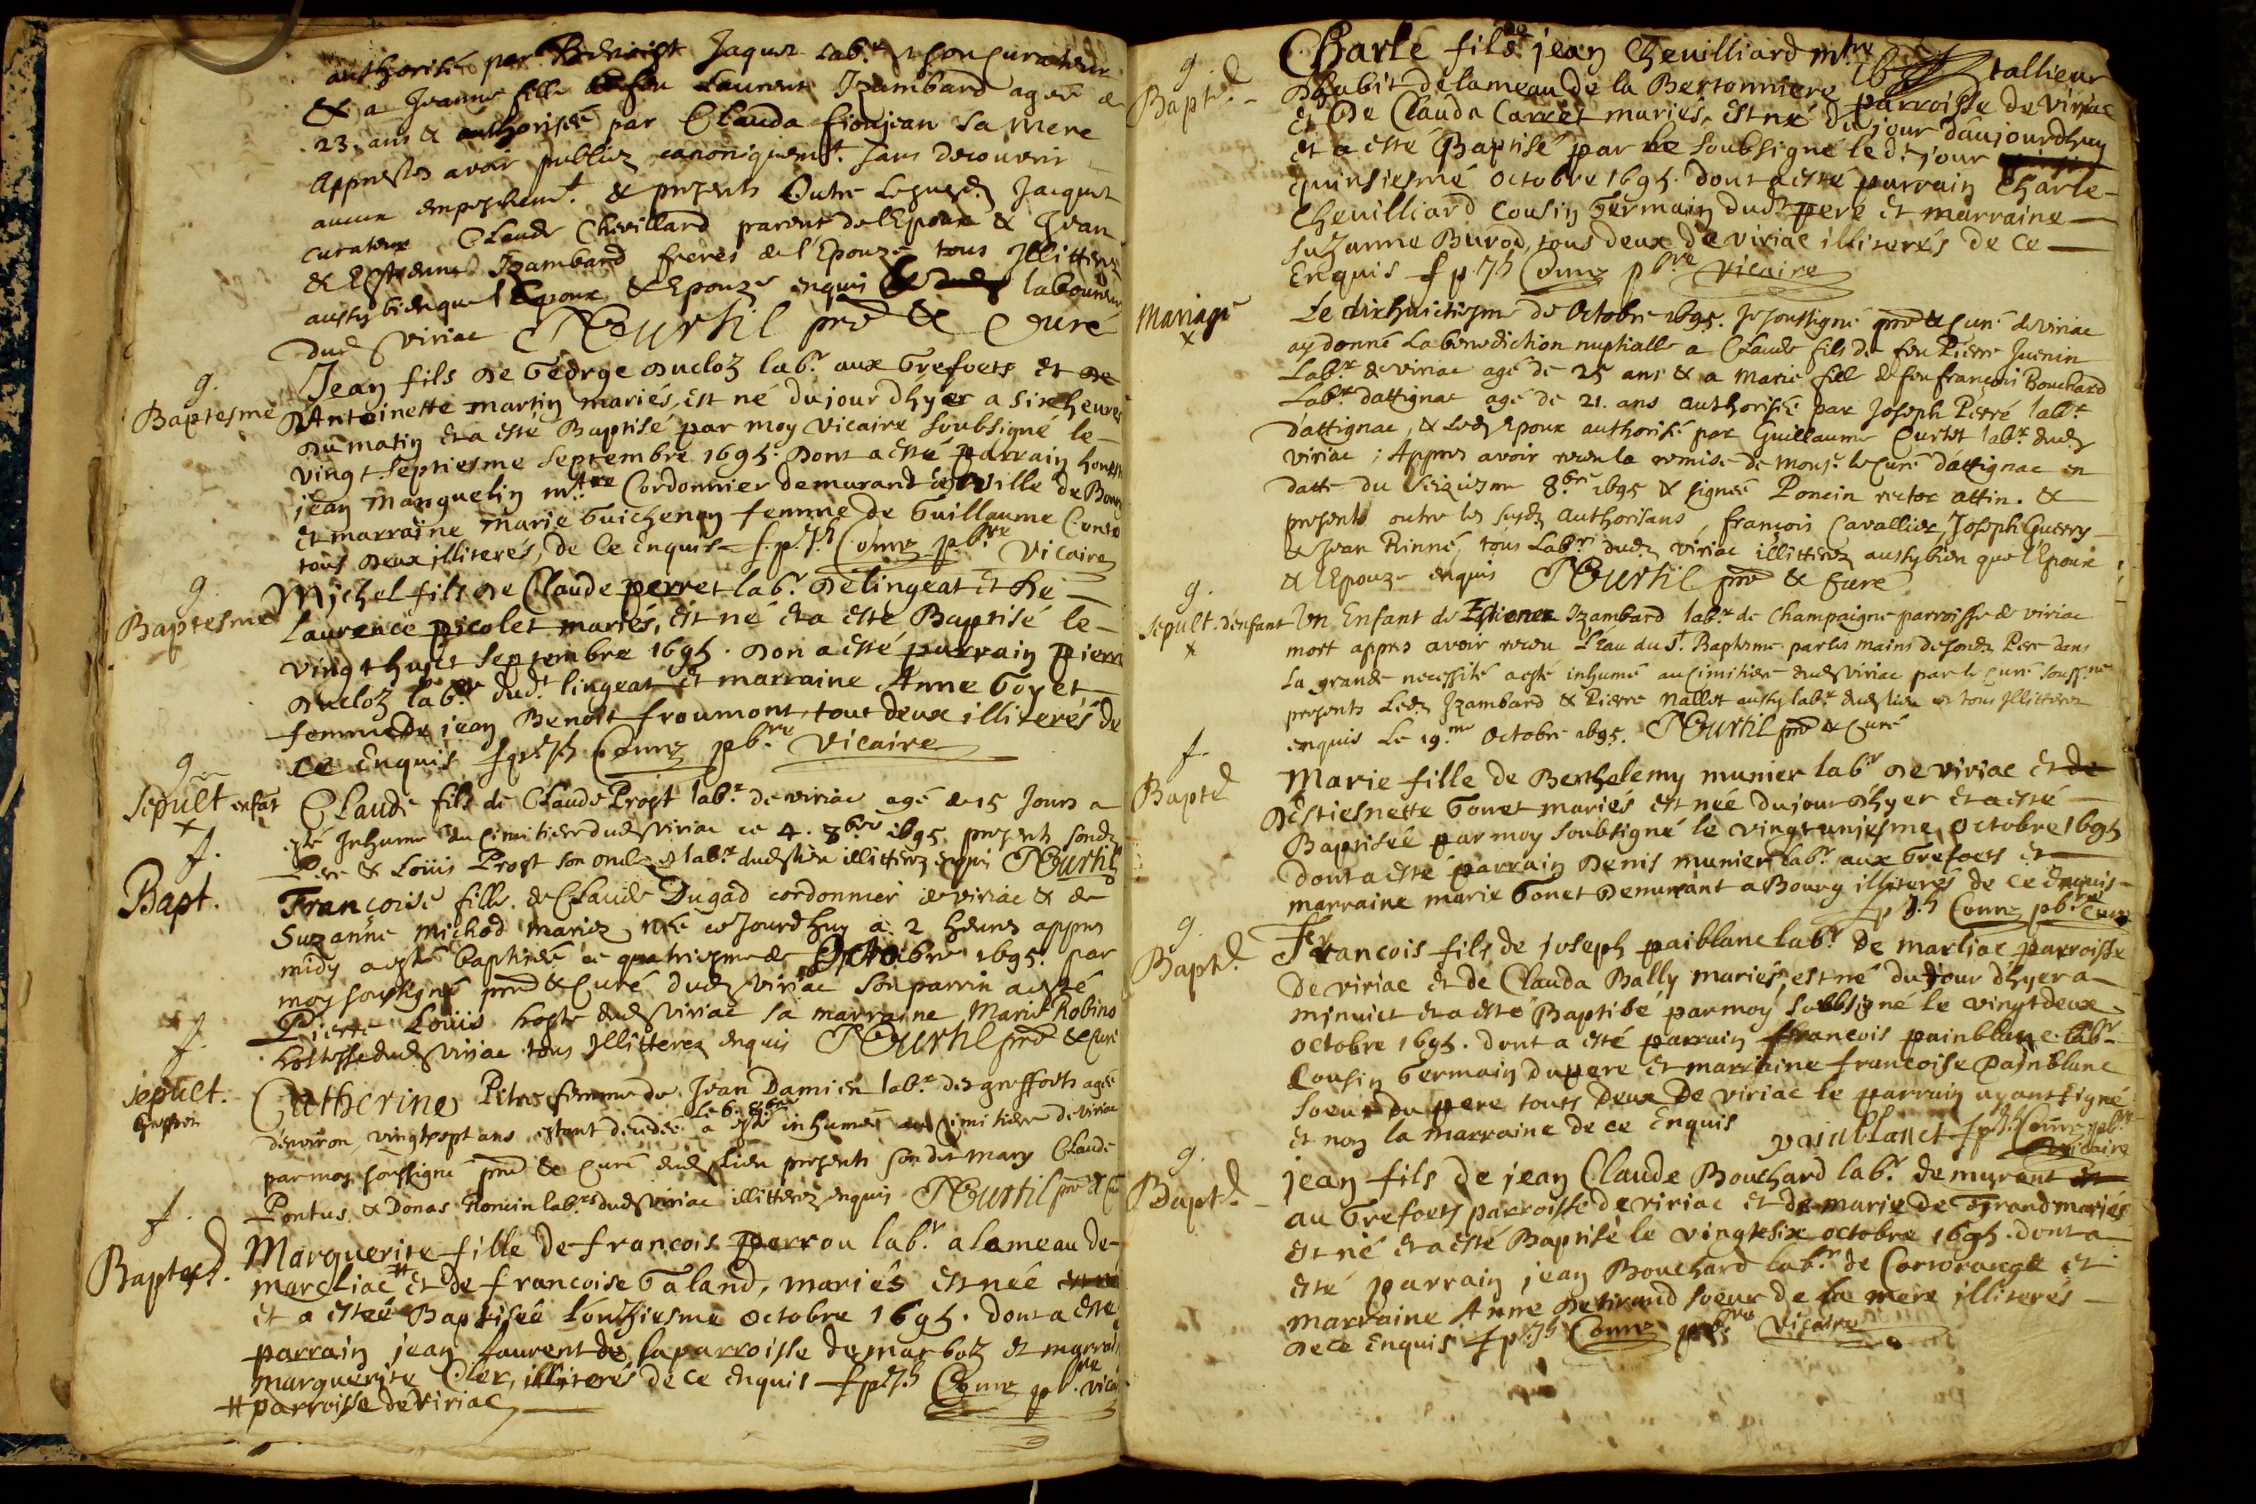 authorisé par Benoist Jaquet lab.r son curateur
& a Jeanne fille de feu Laurent Izambard agée de
23. ans & authorisée par Clauda fionjean sa mere
Appres avoir publiez canoniquem.t sans decouvrir
aucun empeschem.t & presents Outre lesusd. Jacquet
curateur Claude Chevillard parent de l'Epoux & Jean
& Estienne Izambard freres de l'Epouze tous Illitterez
aussy bien que l'Epoux & Epouze enquis laboureurs
dud. viriac NCurtil pre & Curé
g.
Baptesme
Jean fils de George ducloz lab.r aux Grefoets et de
d'Antoinette martin mariés, est né du jour dhyer a six heures
du matin et a esté Baptisé par moy vicaire soubsigné le
vingt septiesme septembre 1695. dont a esté parrain
jean manguelin m.tre Cordonnier demurand ville de Bourg
et marraine marie Guichenon femme de Guillaume
tous deux illiterés, de ce enquis p.bre vicaire
g.
Baptesme
Michel fils de Claude perret lab.r de lingeat et de
Laurence picolet mariés, est né et a esté Baptisé le
vingt huict septembre 1695. don a esté parrain pierre
ducloz lab.r dud.t lingeat et marraine Anne Goyet
femme de jean Benoit froumont, tout deux illiterés de
ce enquis pb.re vicaire
g.
sepult enfat
x
Claude fils de Claude Prost lab.r de viriac agé de 15 Jours a
esté Inhumé au cimitiere dud. viriac ce 4. 8.bre 1695 presents sond.
Pere & Loüis Prost son oncle lab.r dud. lieu illitterez enquis NCurtil
f.
Bapt.
Francoise fille de Claude Dugad cordonnier de viriac & de
Suzanne michod mariez née ce Jourdhuy a 2 heures appres
midy a esté baptisée ce quatriesme de Octobre 1695. par
moy soussigné pre & Curé dud. viriac Son parrin a esté
Pierre Loüis hoste dud. viriac sa marraine Marie Robino
hostesse dud. viriac tous Illitterez enquis NCurtil pre & Curé
f.
sepult.
Catherine Pitre femme de Jean Damien lab.r des greffoets agée
d'environ vingt sept ans estant decedee a esté le 6. 8.bre inhumée au cimitiere de viriac
par moy soussigné pre & Curé dud. lieu presents son dit mary Claude
Pontus & Donas Poncin lab.rs dud. viriac illitterez enquis NCurtil pre & Cu
f.
Marguerite fille de francois perrou lab.r a lameau de
marcliac # et de francoise Galand, mariés est née
et a estée Baptisée l'onziesme octobre 1695. dont a esté
parrain jean laurent de la parroisse de marboz et marrai
marguerite Cler, illiterés de ce enquis vicai
# parroisse de viriac
g.
Bapt.d
Charle fils de jean Cheuilliard m.tre tallieur
Dhabit de lameau de la Bertonniere parroisse de viriac
et De Clauda Carret mariés, est né du jour daujourdhuy
et a esté Baptisé par le soubsigné le d.t jour
quinsiesme octobre 1695. dont a esté parrain Charle
Cheuilliard Cousin Germain dud.t pere et marraine
suzanne Burod, tous deux de viriac illiterés de ce
Enquis pb.re vicaire
Mariage
x
Le dixhuictiesme de Octobre 1695. Je soussigné pre & Curé de viriac
ay donné la benediction nuptialle a Claude fils de feu Pierre Juenin
Lab.r de viriac agé de 25 ans & a Marie fille de feu françois Bouchard
Lab.r dattignac agé de 21. ans authorisée par Joseph Perré lab.r
d'attignac, & led. Epoux authorisé par Guillaume Curtet lab.r dud.
viriac ; Appres avoir receu la remise de mons.r le Curé d'attignac en
datte du seiziesme 8.bre 1695 & signée Poncin rector attin. &
presents outre les susd. authorisans, françois Cavallier, Joseph Guerry
& Jean Pinné, tous Lab.rs dud. viriac illitterez aussy bien que l'Epoux
& l'Epouze enquis NCurtil pre & Curé
g.
sepult. d'enfant
x
Un Enfant de Estienne Izambard lab.r de Champaigne parroisse de viriac
mort appres avoir receu l'Eau du S.t Baptesme par les mains de sond. Pere dans
la grande necessité a esté inhumé au cimitiere dud. viriac par le curé souss.né
presents Led. Izambard & Pierre Nallet aussy lab.r dud. lieu tous Illitterez
enquis Le 19.me Octobre 1695. NCurtil pre & Curé
f.
Bapt.d
Marie fille de Berthelemy munier lab.r de viriac et de
Destiesnette Gonet mariés est née du jour dhyer et a esté
Baptisée par moy soubsigné le vingt uniesme Octobre 1695
dont a esté parrain denis munier lab.r aux Grefoets et
marraine marie Gonet demurant a Bourg illiterés de ce enquis
g.
Bapt.d
Francois fils de joseph paiblanc lab.r de marliac parroisse
de viriac et de Clauda Bally mariés, est né du jour dhyer a
minuict et a esté Baptisé par moy soubsigné le vingt deux
octobre 1695. dont a esté parrain francois painblanc lab.r
Cousin Germain du pere et marraine francoise Painblanc
soeur du pere touts deux De viriac le parrain ayant signé
et non la marraine de ce Enquis painblanct vicaire
g.
Bapt.d
jean fils de jean Claude Bouchard lab.r demurant
au Grefoets parroisse de viriac et de marie de Tirand mariés
est né et a esté Baptisé le vingt six octobre 1695. dont a
esté parrain jean Bouchard lab.r de Corcrangt et
marraine Anne de tirand soeur de la mere illiterés
de ce enquis pb.re vicaire